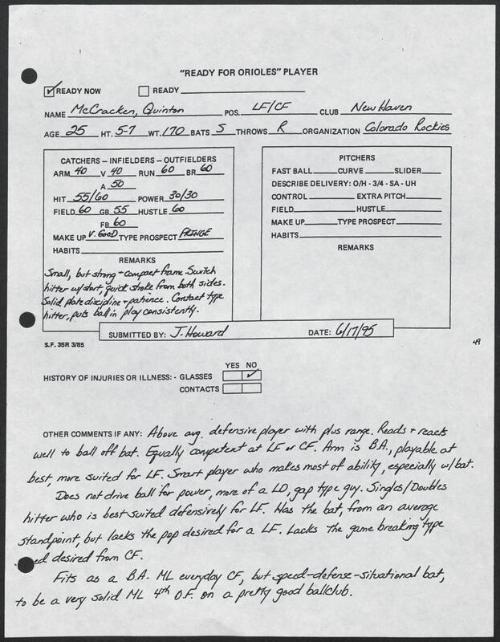 "READY FOR ORIOLES" PLAYER
READY NOW READY
NAME McCracken, Quinton POS. LF/CF CLUB New Haven
AGE 25 HT. 5-7 WT. 170 BATS S THROWS R ORGANIZATION Colorado Rockies
CATCHERS – INFIELDERS – OUTFIELDERS
ARM 40 V 40 RUN 60 BR 60
A 50
HIT 55/60 POWER 30/30
FIELD 60 GB 55 HUSTLE 60
FB 60
MAKE UP V. GOOD TYPE PROSPECT FRINGE
HABITS
REMARKS
Small, but strong + compact frame. Switch
hitter w/ short, quick stroke from both sides.
Solid plate discipline + patience. Contact type
hitter, puts ball in play consistently.
PITCHERS
FAST BALL CURVE SLIDER
DESCRIBE DELIVERY: O/H - 3/4 - SA - UH
CONTROL EXTRA PITCH
FIELD HUSTLE
MAKE UP TYPE PROSPECT
HABITS
REMARKS
SUBMITTED BY: J. Howard DATE: 6/17/95
S.F. 35R 3/85
49
YES NO
HISTORY OF INJURIES OR ILLNESS: - GLASSES
CONTACTS
OTHER COMMENTS IF ANY: Above avg. defensive player with plus range. Reads + reacts
well to ball off bat. Equally competent at LF or CF. Arm is B.A., playable at
best, more suited for LF. Smart player who makes most of ability, especially w/ bat.
Does not drive ball for power, more of a LD, gap type guy. Singles/Doubles
hitter who is best suited defensively for LF. Has the bat, from an average
standpoint, but lacks the pop desired for a LF. Lacks the game breaking type
desired from CF.
Fits as a B.A. ML everyday CF, but speed-defense-situational bat,
to be a very solid ML 4th O.F. on a pretty good ballclub.